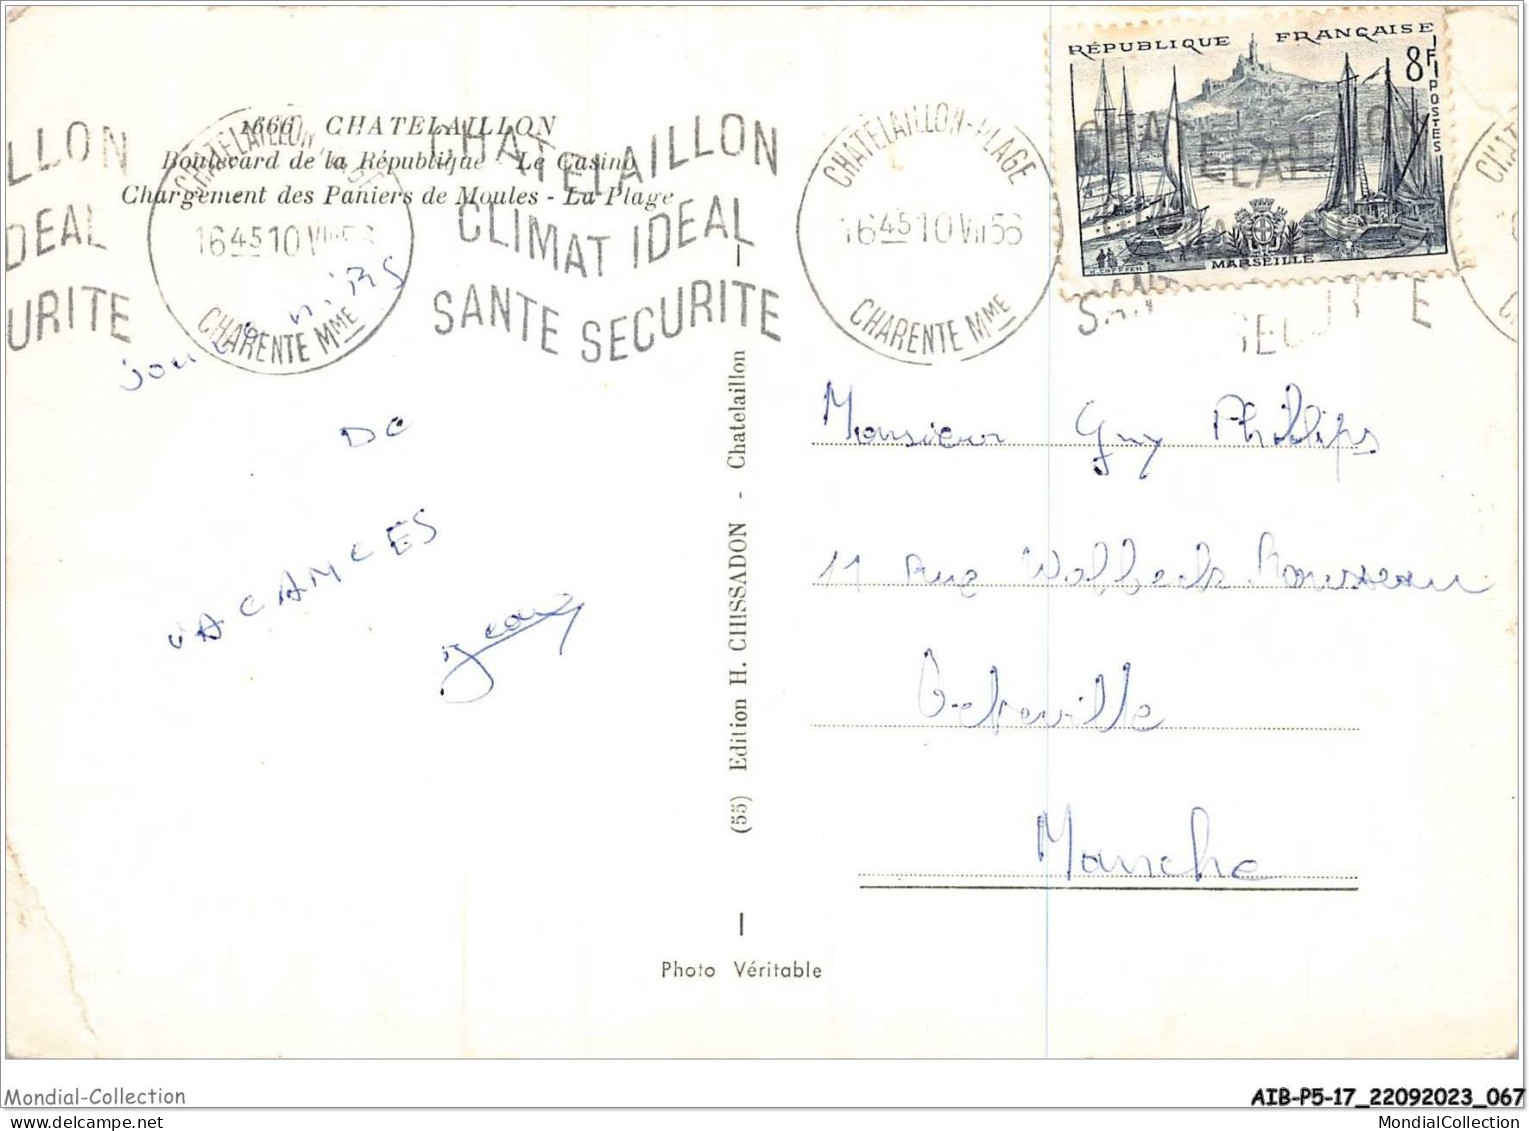 1666 CHATELAILLON
Boulevard de la République - Le Casino
Chargement des Paniers de Moules - La Plage
LLON
DEAL
URITE
CHATELAILLON-PLAGE
1645 10 VII 56
CHARENTE Mme
CHATELAILLON
CLIMAT IDEAL
SANTE SECURITE
CHATELAILLON-PLAGE
1645 10 VII 56
CHARENTE Mme
RÉPUBLIQUE FRANÇAISE
8F
POSTES
MARSEILLE
DE
VACANCES
Jean
(55) Edition H. CHISSADON - Chatelaillon
Monsieur Guy Phillips
11 Rue
Octeville
Manche
Photo Véritable
Mondial-Collection
AIB-P5-17_22092023_067
MondialCollection